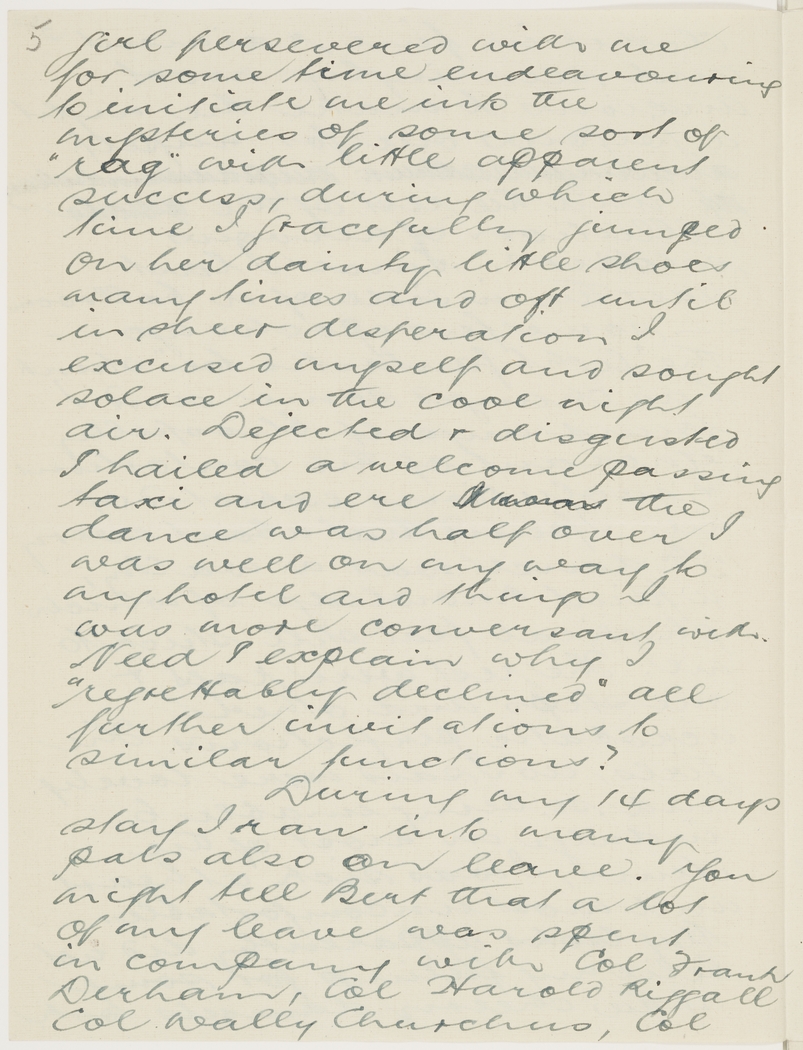 5 girl persevered with me
for some time endeavouring
to initiate me into the
mysteries of some sort of
"rag" with little apparent
success, during which
time I gracefully jumped
on her dainty little shoes
many times and oft until
in sheer desperation I
excused myself and sought
solace in the cool night
air. Dejected & disgusted
I hailed a welcome passing
taxi and ere the
dance was half over I
was well on my way to
my hotel and things I
was more conversant with.
Need I explain why I
"regrettably declined" all
further invitations to
similar functions?
During my 14 days
stay I ran into many
pals also on leave. You
might tell Bert that a lot
of my leave was spent
in company with Col Frank
Derham, Col Harold Riggall
Col Wally Churchus, Col